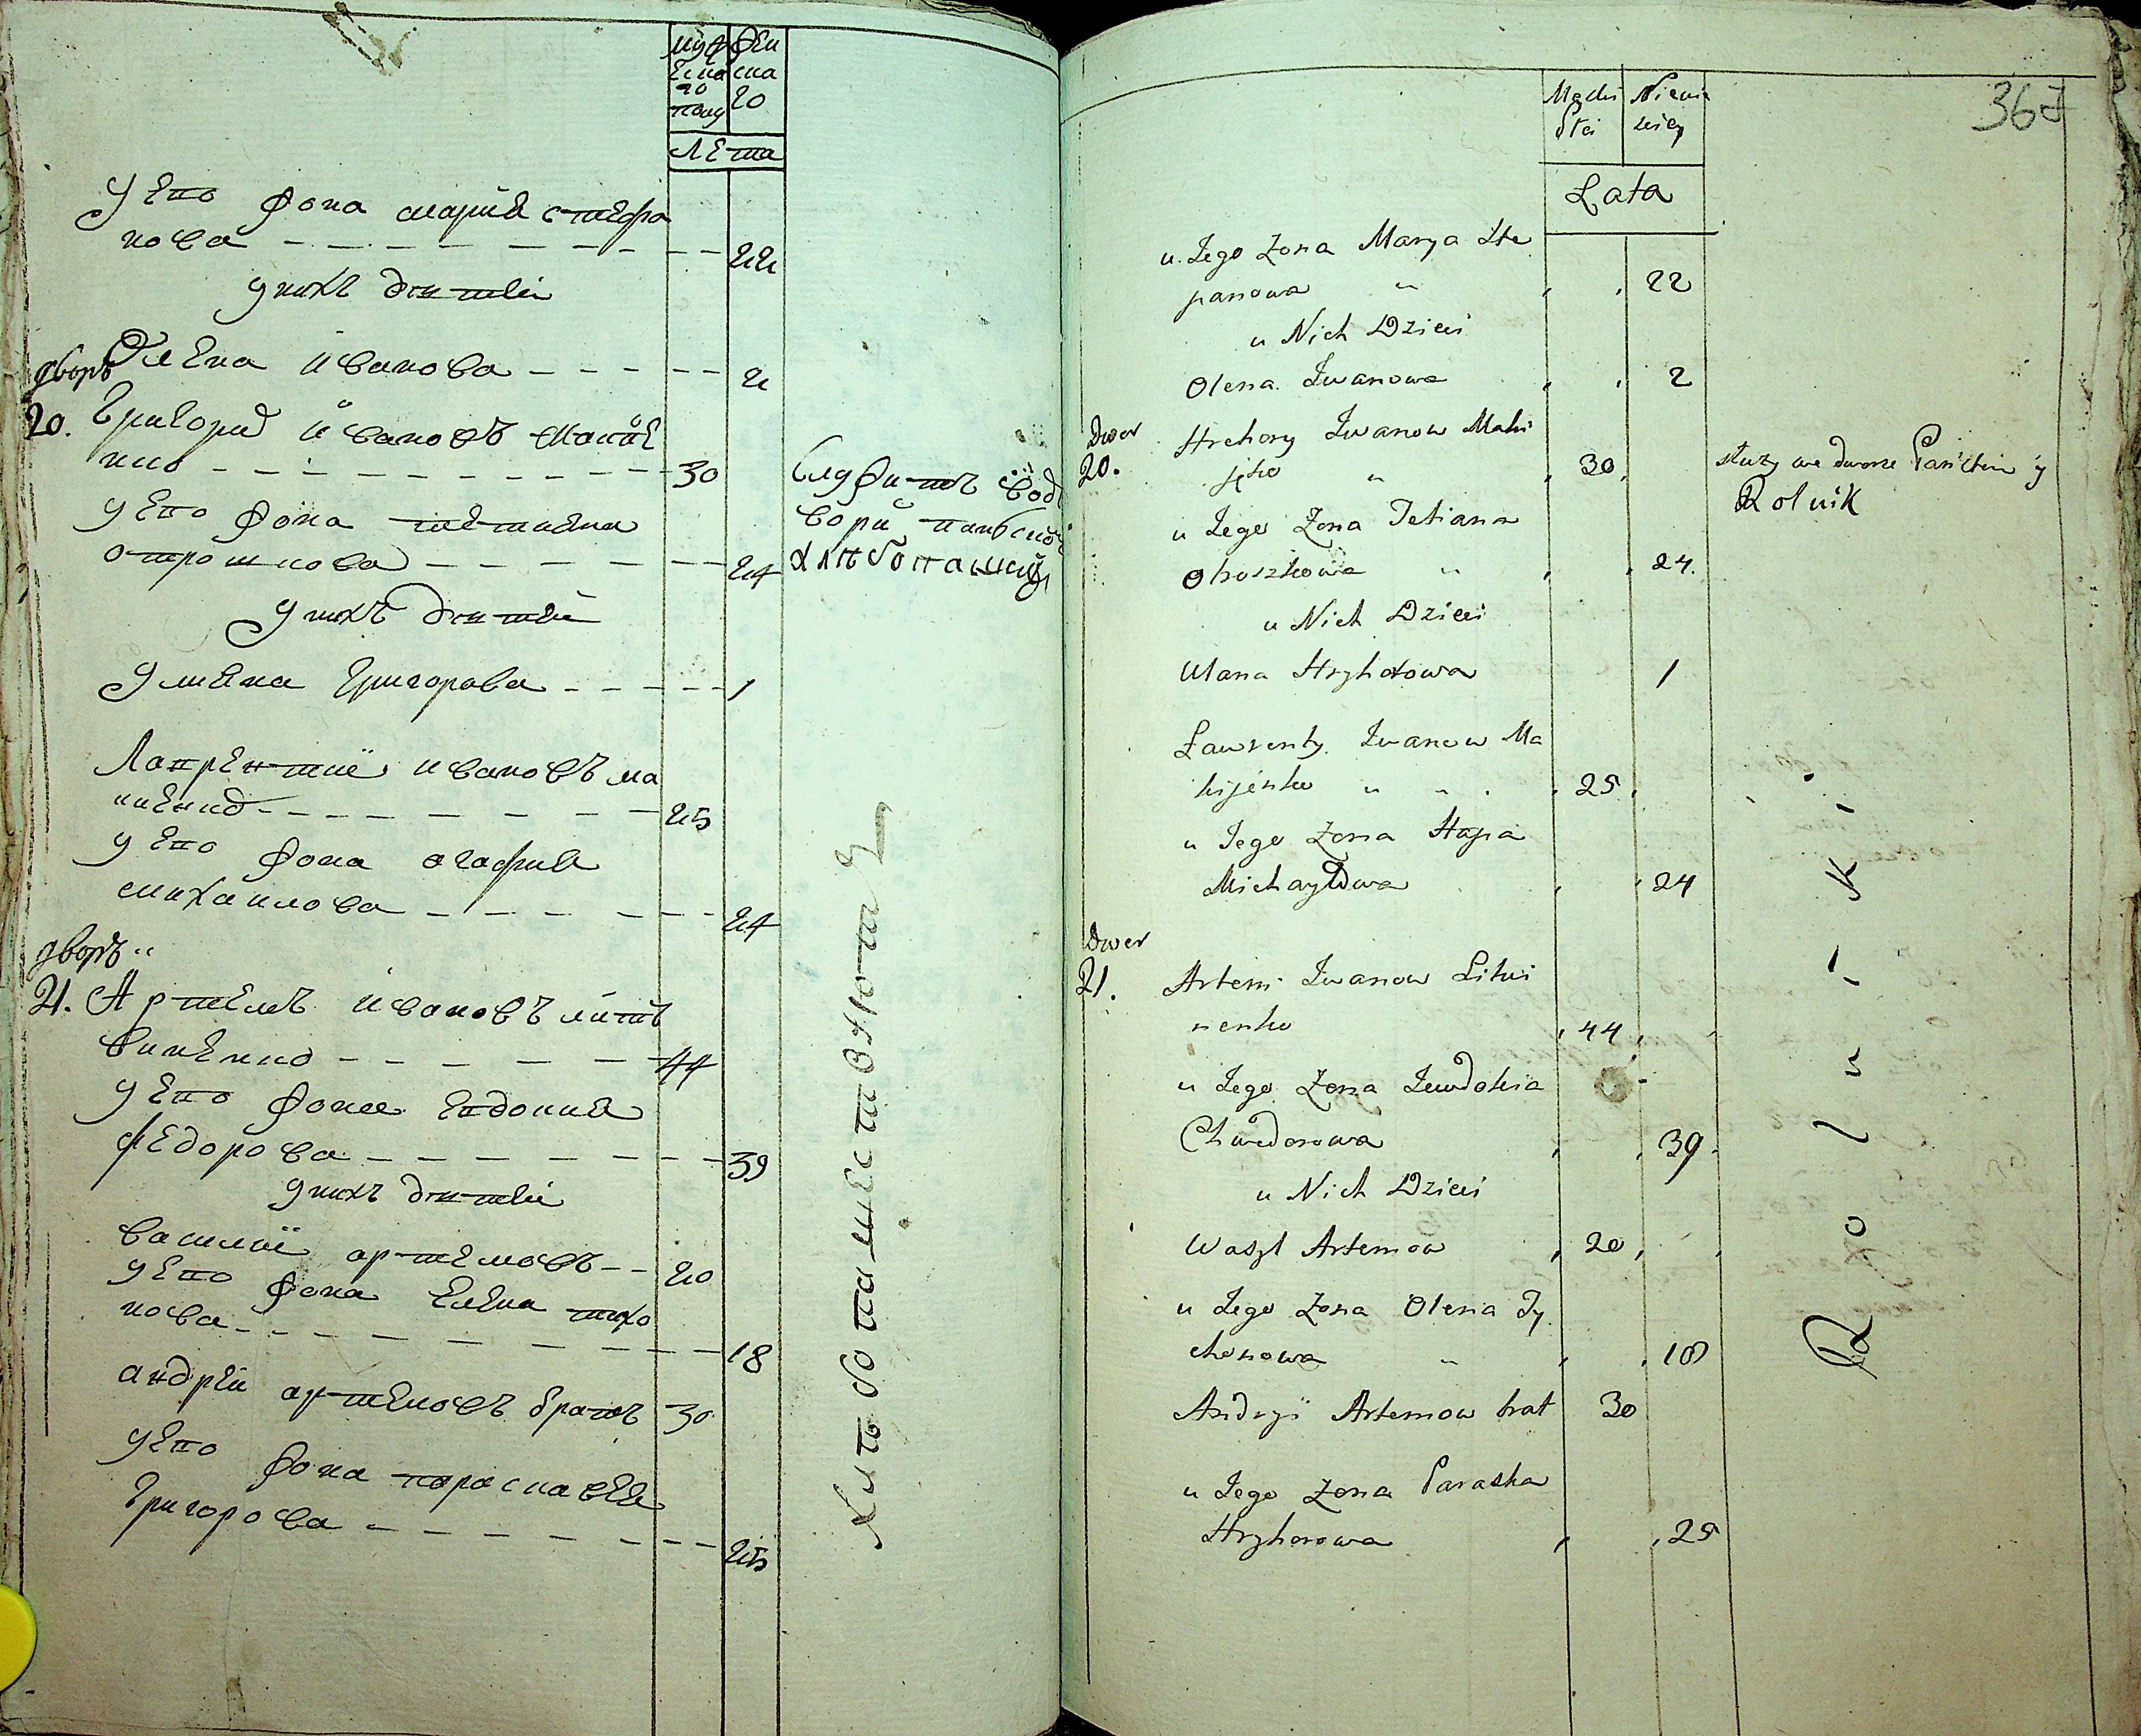 мужескаго полу
женскаго
Лета
У его жона марія стефа
нова 22
у нихъ дѣтей
Олена иванова 2
дворъ
20. Григорій ивановъ Макіе
нко 30
Служитъ в дво
У его жона татиана
отрошкова 24
хлѣбопашецъ
у нихъ дѣтей
Улиана Григорова 1
Лаврентий ивановъ ма
киенко 25
у его жона агафия
михаилова 24
дворъ
21. Артемъ ивановъ лит
виненко 44
у его жона Евдокия
федорова 39
у нихъ дѣтей
василий артемовъ 20
у его жона Елена тихо
нова 18
андрей артемовъ братъ 30
у его жона парасковея
Григорова 25
367
Lata
u Jego Zona Marya Ste
panowa 22
u Nich Dzieci
Olena Iwanowa 2
Dwor
20. Hrehory Iwanow Maki
jęko 30
służy we dworze Pańskim y
Rolnik
u Jego Zona Tetiana
Otroszkowa 24
u Nich Dzieci
Ulana Hryhorowa 1
Ławrenty Iwanow Ma
kijenko 25
u Jego Zona Hapa
Michayłowa 24
Dwor
21. Artem Iwanow Litwi
nenko 44
u Jego Zona Jewdokia
Chwedorowa 39
u Nich Dzieci
Wasyl Artemow 20
u Jego Zona Olena Ty
chonowa 18
Andryi Artemow brat 30
u Jego Zona Paraska
Hryhorowa 25
Rolniki